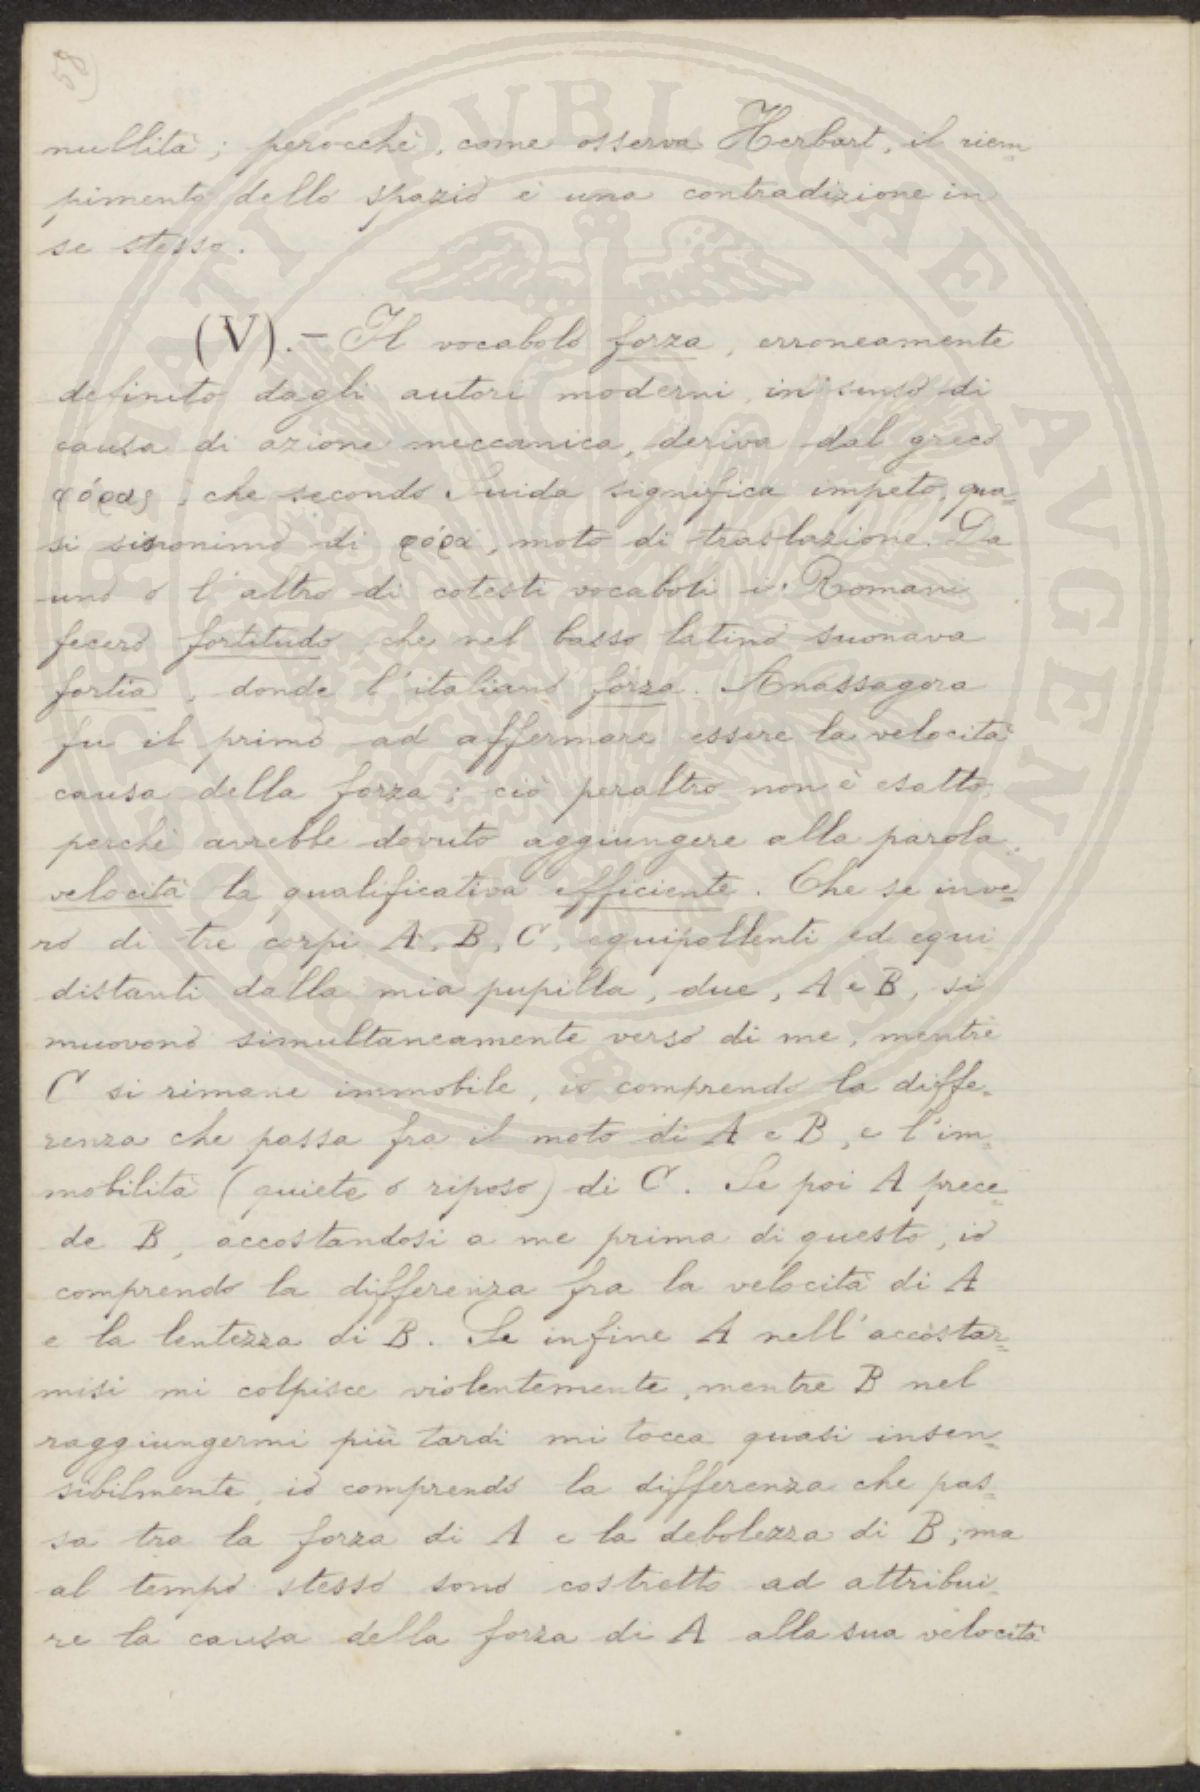 58)
nullità; perocchè, come osserva Herbart, il riem=
pimento dello spazio è una contradizione in
se stesso.
(V).– Il vocabolo forza, erroneamente
definito dagli autori moderni, in senso di
causa di azione meccanica, deriva dal greco
φόρας, che secondo Suida significa impeto, qua=
si sinonimo di φόρα, moto di traslazione. Da
uno o l'altro di cotesti vocaboli i Romani
fecero fortitudo, che nel basso latino suonava
fortia, donde l'italiano forza. Anassagora
fu il primo ad affermare essere la velocità
causa della forza; ciò peraltro non è esatto,
perchè avrebbe dovuto aggiungere alla parola
velocità la qualificativa efficiente. Che se inve=
ro di tre corpi A, B, C, equipollenti ed equi
distanti dalla mia pupilla, due, A e B, si
muovono simultaneamente verso di me, mentre
C si rimane immobile, io comprendo la diffe=
renza che passa fra il moto di A e B, e l'im=
mobilità (quiete o riposo) di C. Se poi A prece=
de B, accostandosi a me prima di questo, io
comprendo la differenza fra la velocità di A
e la lentezza di B. Se infine A nell'accostar=
misi mi colpisce violentemente, mentre B nel
raggiungermi più tardi mi tocca quasi insen=
sibilmente, io comprendo la differenza che pas=
sa tra la forza di A e la debolezza di B; ma
al tempo stesso sono costretto ad attribui=
re la causa della forza di A alla sua velocità